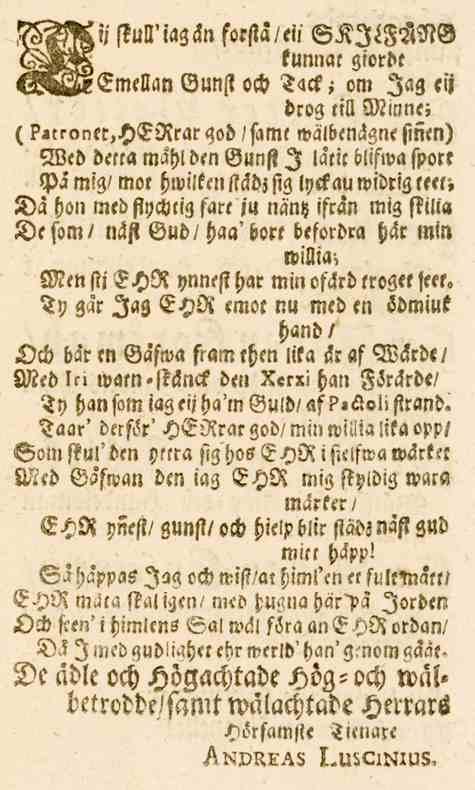 Eij skull' iag än förstå / eij SKJLFÄNG
kunnat giorde
Emellan Gunst och Tack; om Jag eij
drog till Minne;
( Patroner, HERrar god / samt wälbenägne siñen)
Wed detta mähl den Gunst J låtit blifwa sport
På mig/ mot hwilken städz sig lyckau widrig teet;
Då hon med flychtig fart ju nänz ifrån mig skilia
De som / näst Gud / haa' bort befordra här min
willia;
Men stj EHR ynnest har min ofärd troget seet.
Ty går Jag EHR emot nu med en ödmiuk
hand /
Och bär en Gåfwa fram ehen lika är af Wärde /
Med Iri watn-skänck den Xerxi han Förärde /
Ty han som iag eij ha'm Guld / af Pactoli strand.
Taar' derför' HERrar god / min willia lika opp /
Som skul' den yttra sig hos EHR i sielfwa wärket
Med Gåfwan den iag EHR mig skyldig wara
märker /
EHR yñest / gunst / och hielp blir städz näst gud
mitt håpp!
Så håppas Jag och wist / at himl'en et fult mått /
EHR mäta skal igen / med hugna här på Jorden
Och seen' i himlens Sal wäl föra an EHR ordan /
Då J med gudlighet ehr werld' han' genom gååt.
De ädle och Högachtade Hög- och wäl-
betrodde / samt wälachtade Herrars
Hörsamste Tienare
ANDREAS LUSCINIUS.